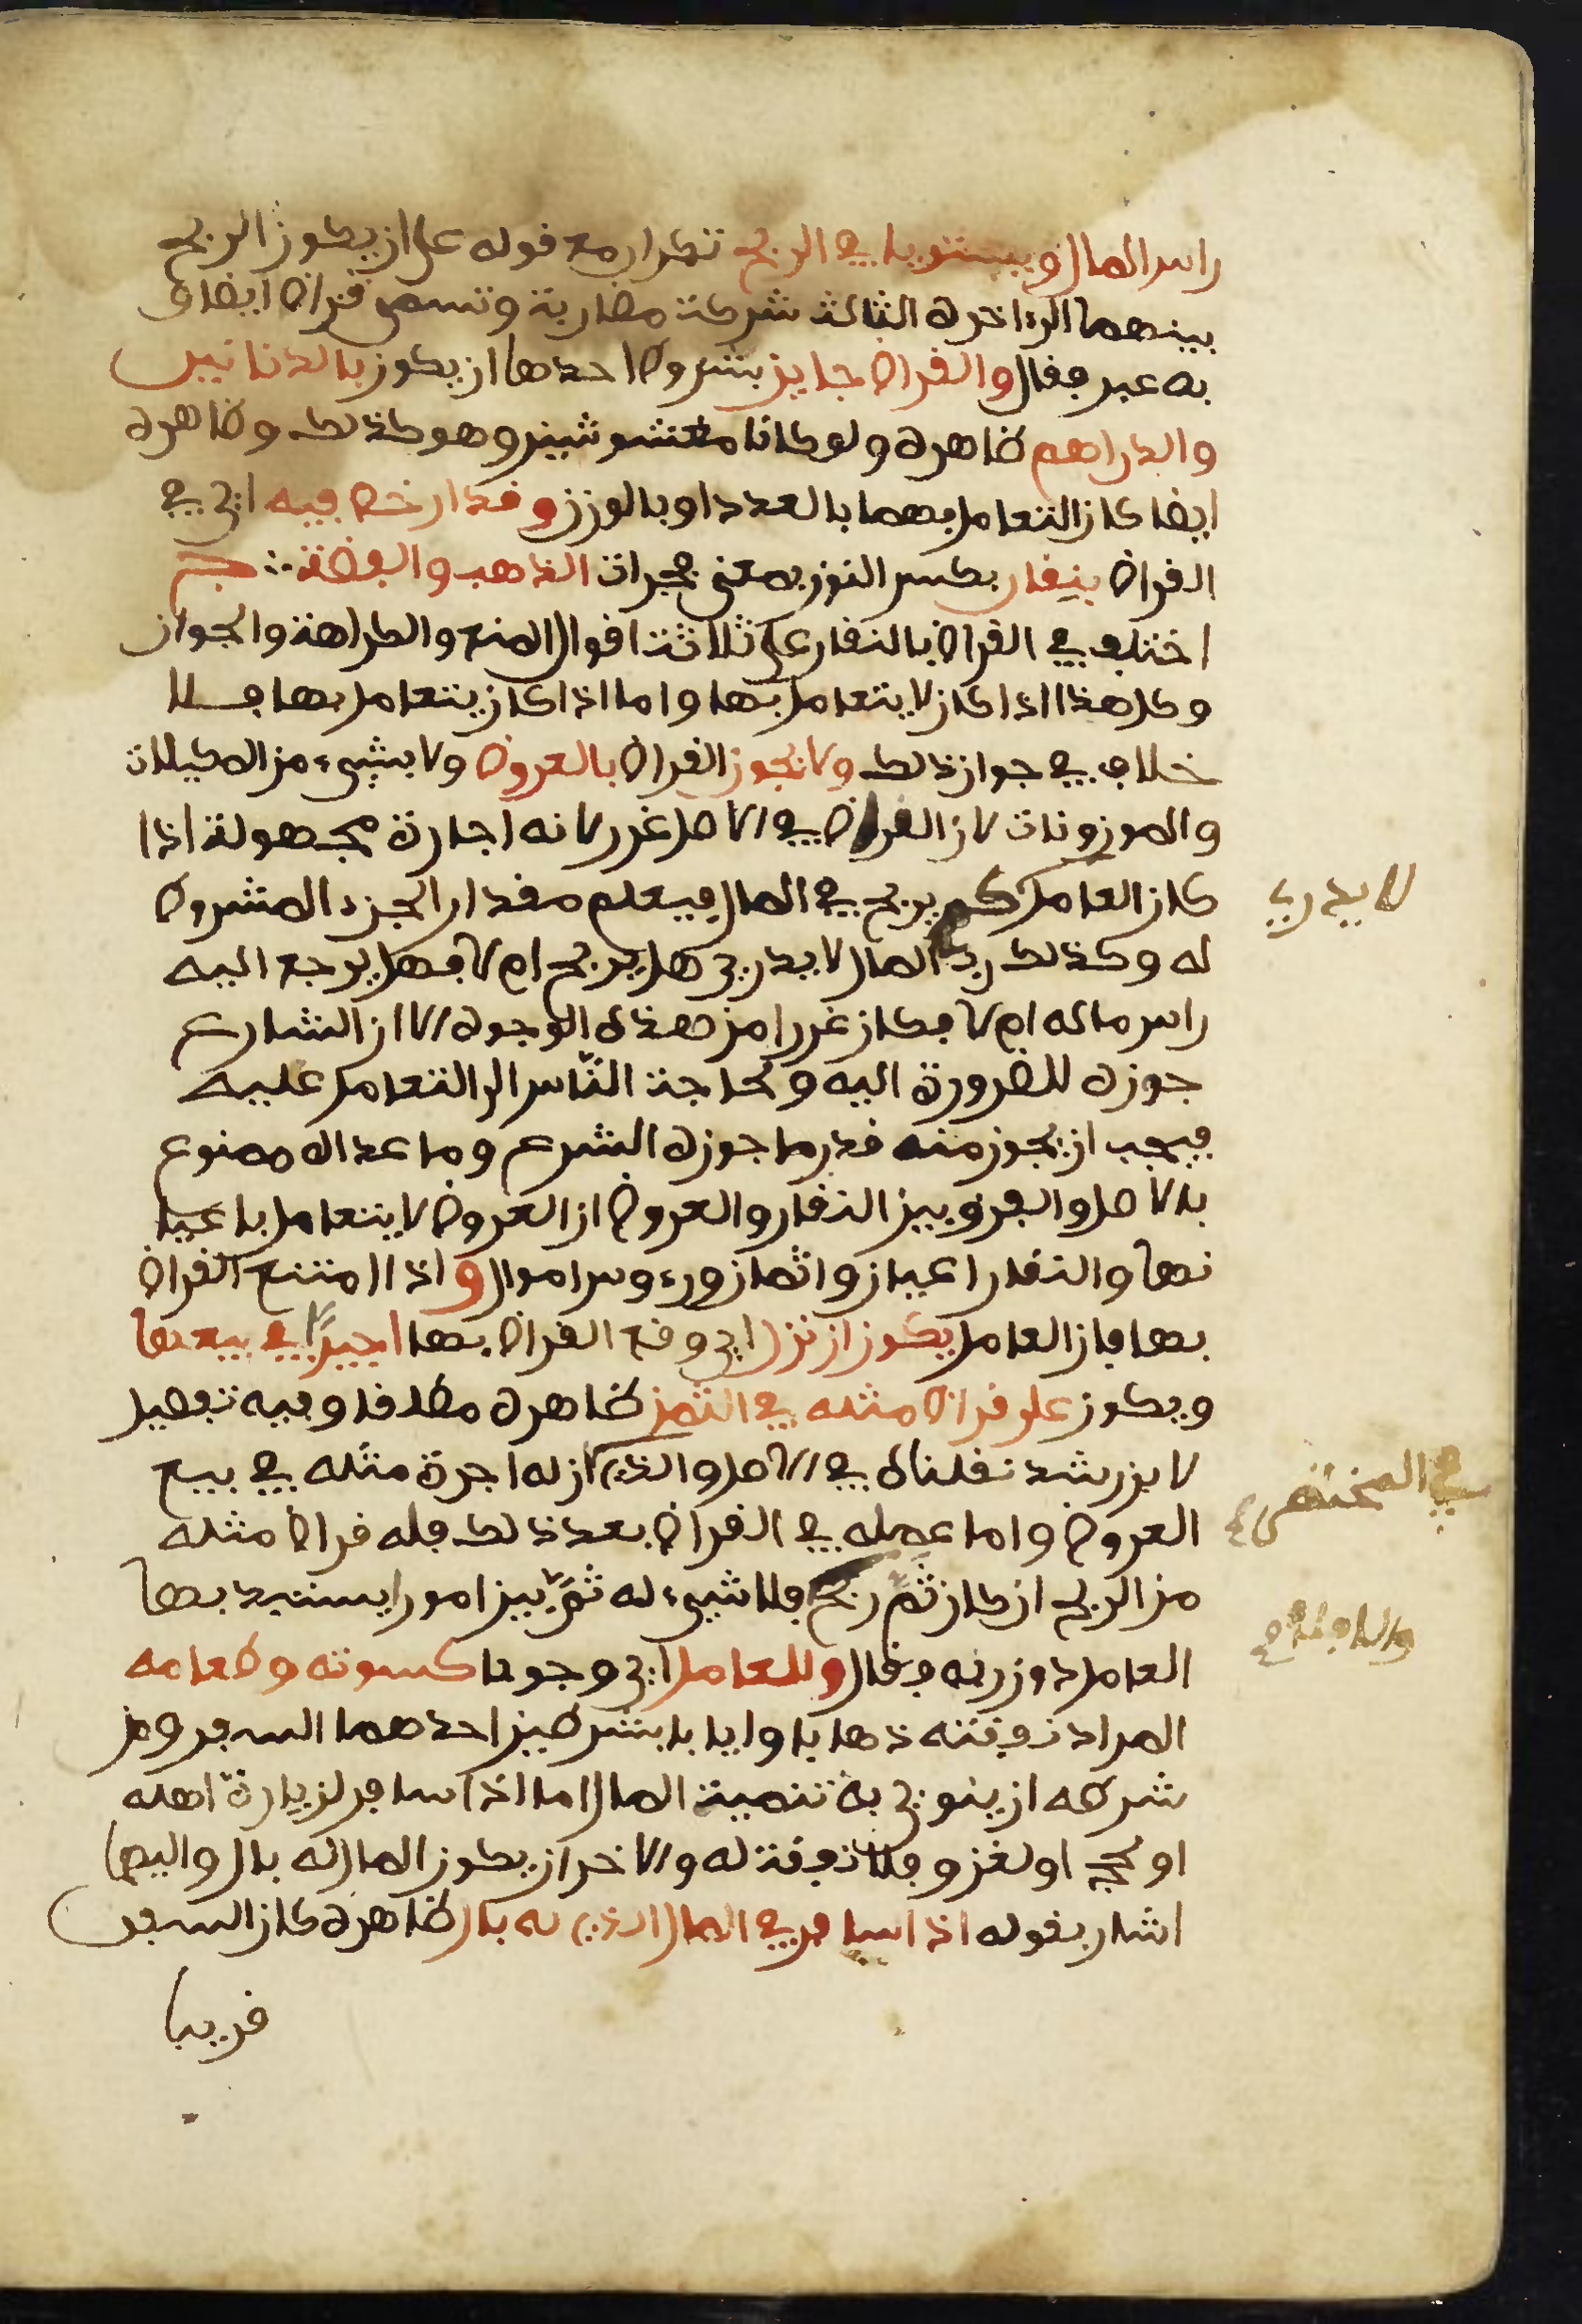 راس المال ويستويا في الربح تكرار مع قوله على ان يكون الربح
بينهما الى اخره الثالث شركة مضاربة وتسمى قراضا ايضا و
به عبر فقال والقراض جايز بشروط احدها ان يكون بالدنانير
والدراهم ظاهره ولو كانا مغشوشين وهو كذلك وظاهره
ايضا كان التعامل بهما بالعدد او بالوزن وقد ارخص فيه اي في
القراض بنقار بكسر النون بمعنى فجرات الذاهب والفضة ∴ ج
اختلف في القراض بالنقار على ثلاثة اقوال المنع والكراهة والجواز
وكل هذا اذا كان لا يتعامل بها واما اذا كان يتعامل بها فلا
خلاف في جواز ذلك ولا يجوز القراض بالعروض ولا بشيء من المكيلات
والموزونات لان القراض في الاصل غرر لانه اجارة مجهولة اذا
كان العامل كم يربح في المال فيعلم مقدار الجزء المشروط
لا يدري
له وكذلك رب المال لا يدري هل يربح ام لا فهل يرجع اليه
راس ماله ام لا فكان غررا من هذه الوجوه الا ان الشارع
جوزه للضرورة اليه ولحاجة الناس الى التعامل عليه
فيجب ان يجوز منه قدر ما جوزه الشرع وما عداه ممنوع
بالاصل والفرق بين النقار والعروض ان العروض لا يتعامل باعيا
نها والنقار اعيان واثمان ورءوس اموال واذا امتنع القراض
بها فان العامل يكون ان نزل اي وقع القراض بها اجيرا في بيعها
ويكون على قراض مثله في الثمن ظاهره مطلقا وفيه تفصيل
لابن رشد نقلناه في الاصل والذي ان له اجرة مثله في بيع
في المختصر
العروض واما عمله في القراض بعد ذلك فله قراض مثله
من الربح ان كان ثم ربح فلا شيء له ثم بين امورا يستبد بها
والا فلا
العامل دون ربه فقال وللعامل اي وجوبا كسوته وطعامه
المراد نفقته ذهابا وايابا بشرطين احدهما السفر ومن
شرطه ان ينوي به تنمية المال اما اذا سافر لزيارة اهله
او لحج او لغزو فلا نفقة له والاخر ان يكون المال له بال واليهما
اشار بقوله اذا سافر في المال الذي له بال ظاهره كان السفر
قريبا